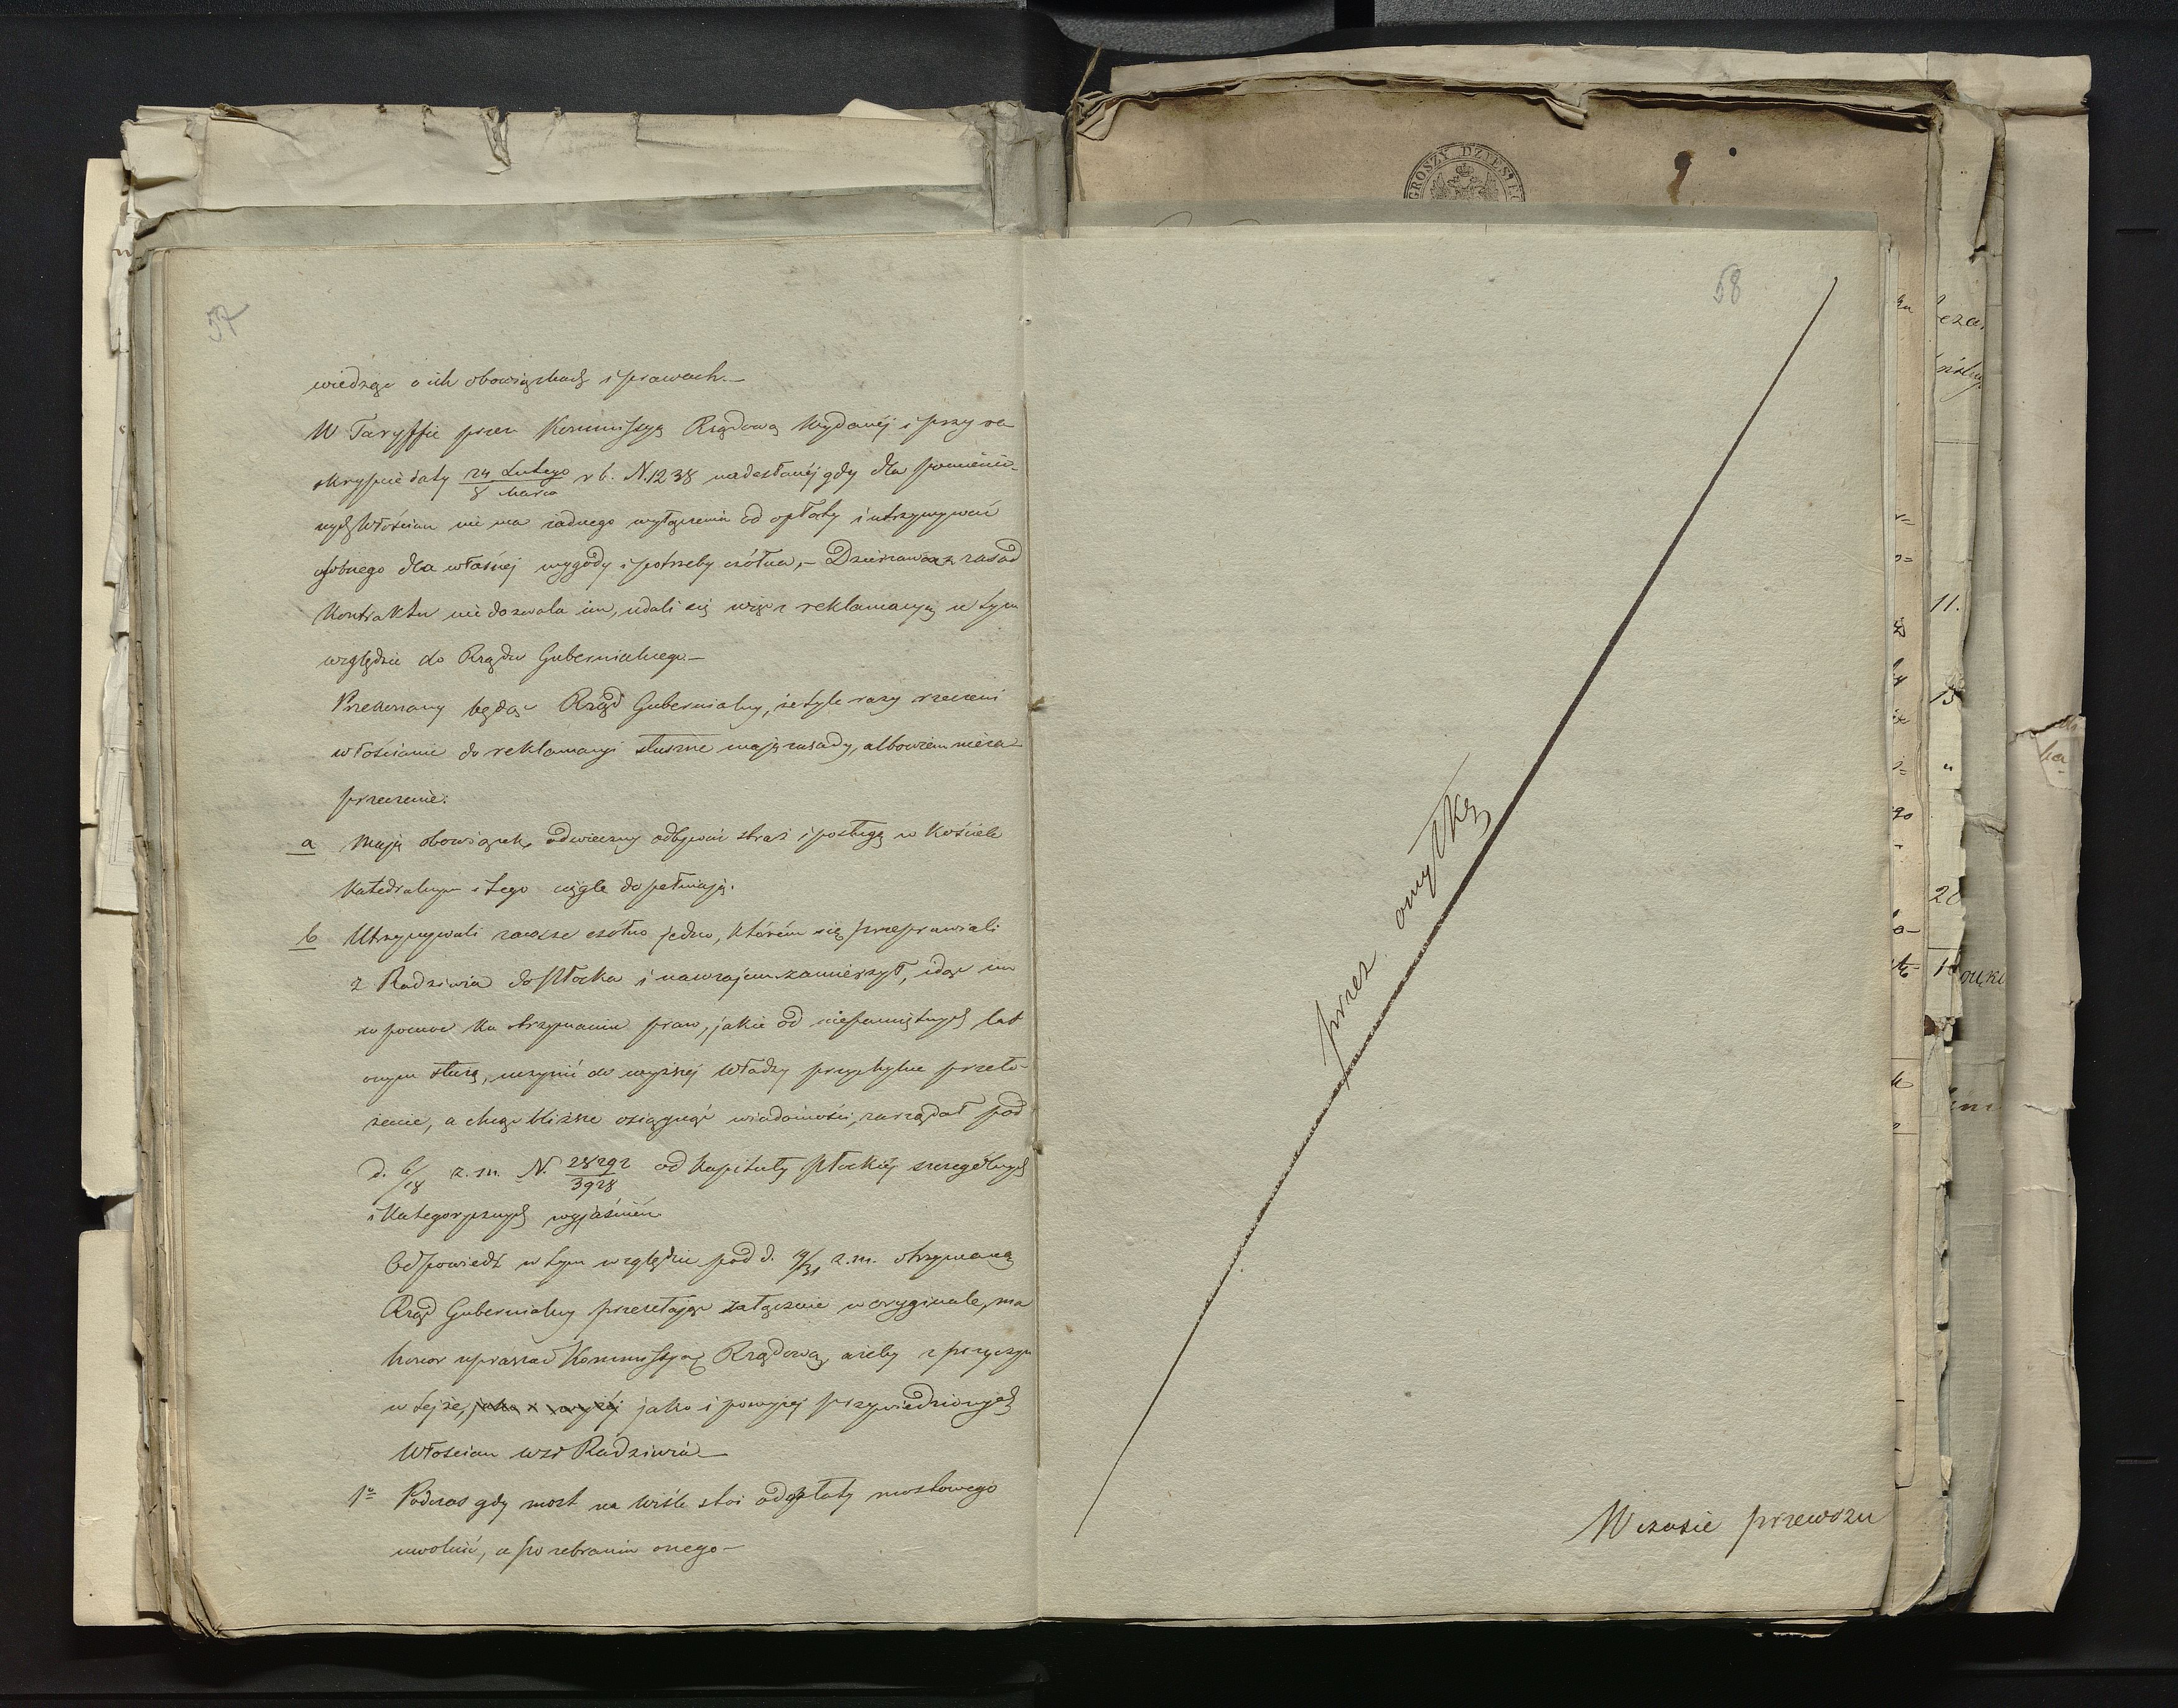 57
wiedząc o ich obowiązkach i prawach.—
W Taryffie przez Kommissyą Rządową wydanéj i przy re
skrypcie daty 24 Lutego / 8 Marca r b. N. 1238 nadesłanéj gdy dla pomienio-
nych Włościan nie ma żadnego wyłączenia od opłaty i utrzymywać
osobnego dla własnéj wygody i potrzeby czółna,— Dzierżawca z zasad
Kontraktu nie dozwala im, udali się więc z reklamacyą w tym
względzie do Rządu Gubernialnego—
Przekonany będąc Rząd Gubernialny, że tyle razy rzeczeni
włościanie do reklamacyi słuszne mają zasady, albowiem nieza-
przeczenie:
a mają obowiązek odwieczny odbywać straż i posługę w Kościele
Katedralnym i tego ciągle dopełniają.
b Utrzymywali zawsze czółno jedno, którém się przeprawiali
z Radziwia do Płocka i nawzajem zamierzył, idąc im
w pomoc ku otrzymaniu praw, jakie od niepamiętnych lat
onym służą, uczynić do wyższej Władzy przychylne przeło-
żenie, a chcąc bliższe osiągnąć wiadomości, zarządał pod
d. 6/18 z. m. N. 28292/3928 od Kapituły Płockiéj szczegółnych
i Kategorycznych wyjaśnień
Odpowiedź w tym względzie pod d. 19/31 z. m. otrzymaną
Rząd Gubernialny przesełając załącznie w oryginale, ma
honor upraszać Kommissyą Rządową ażeby z przyczyn
w tejże, jako i wyżéj jako i powyżej przywiedzionych
Włościan wsi Radziwia—
1° Podczas gdy most na Wiśle stoi od opłaty mostowego
uwolnić, a po zebraniu onego—
58
przez omyłkę
W czasie przewozu
GROSZY DZIESIĘĆ